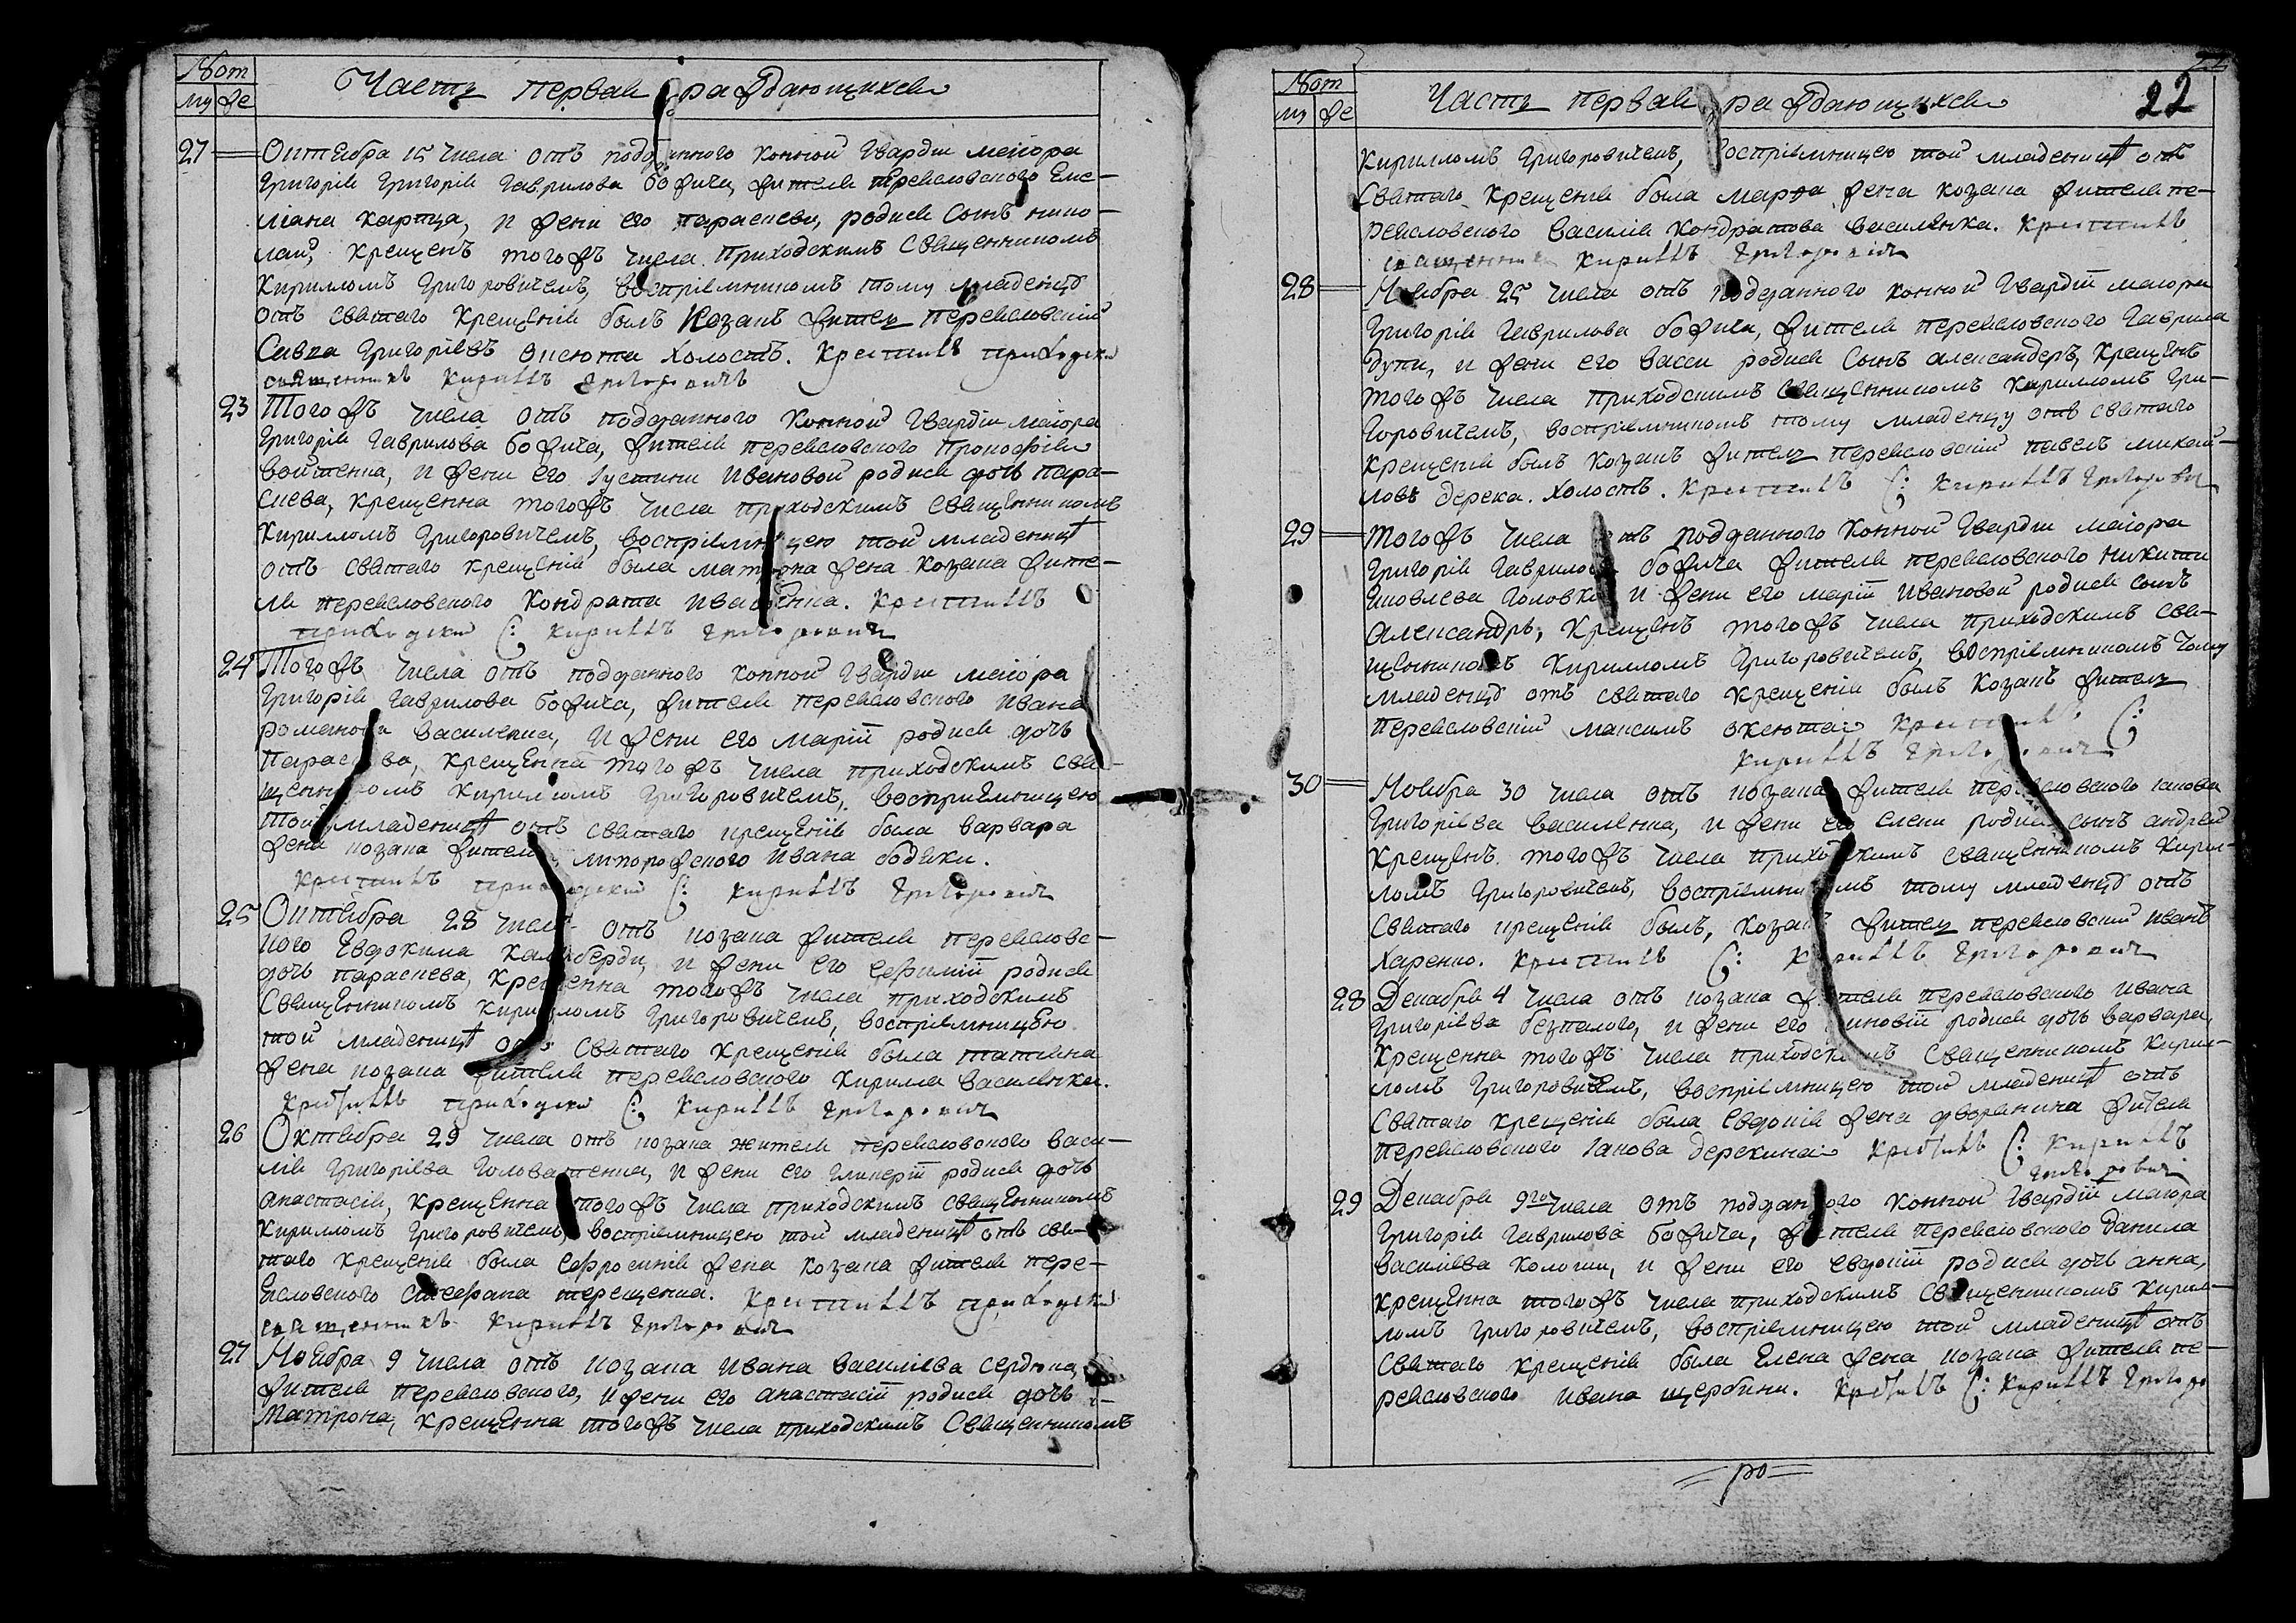 Nом
Часть первая раждающихся
му же
27 Октября 15 числа отъ подданного конной гвардіи маіора
Григорія Григорія Гаврилова божича, жителя переясловского Еме-
ліана карпца, и жени его параскеви, родися Сынъ нико-
лай, крещенъ тогожъ числа приходскимъ Священникомъ
Кириломъ Григоровичемъ, воспріемникомъ тому младенцу
отъ святаго крещенія былъ козакъ житель переясловский
Савва Григоріевъ оксюта холостъ. Крестилъ приходски
священникъ Кирилъ Григоровичъ
23 Тогожъ числа отъ подданного конной гвардіи маіора
Григорія Гаврилова божича, жителя переясловского Прокофія
войтенка, и жени его Іустини Ивановой родися дочь пара-
скева, крещенна тогожъ числа приходскимъ священникомъ
Кириломъ Григоровичемъ, воспріемницею той младеницѣ
отъ святаго крещенія была матрона жена козака жите-
ля переясловского Кондрата Иващенка. Крестилъ
приходски С: Кирилъ Григорович
24 Тогожъ числа отъ подданного конной гвардіи маіора
Григорія Гаврилова божича, жителя переясловского Ивана
романова василенка, и жени его маріи родися дочь
Параскева, крещенна тогожъ числа приходскимъ свя-
щенникомъ Кириломъ Григоровичемъ, воспріемницею
той младеницѣ отъ святаго крещенія была варвара
жена козака жителя липорожского Ивана бодяки.
Крестилъ приходски С: Кирилъ Григорович
25 Октября 28 числа отъ козака жителя переясловс-
кого Евдокима Калиберди, и жени его Ефиміи родися
дочь параскева, крещенна тогожъ числа приходскимъ
Священникомъ Кириломъ Григоровичемъ, воспріемницею
той младеницѣ отъ святаго крещенія была татіяна
жена козака жителя переясловского кирила василенка.
Крестилъ приходски С: Кирилъ Григорович
26 Октября 29 числа отъ козака жителя переясловского васи-
лія Григоріева Головатенка, и жени его гликеріи родися дочь
анастасія, крещенна тогожъ числа приходскимъ священникомъ
Кириломъ Григоровичемъ, воспріемницею той младеницѣ отъ свя-
таго крещенія была Ефросинія жена козака жителя пере-
ясловского стефана терещенка. Крестилъ приходски
священникъ Кирилъ Григорович
27 Ноября 9 числа отъ козака ивана василіева сердюка,
жителя переясловского, и жени его анастасіи родися дочь
матрона, крещенна тогожъ числа приходскимъ Священникомъ
Nом
Часть первая раждающихся 22
му же
Кириломъ Григоровичемъ, воспріемницею той младеницѣ отъ
святаго крещенія была марфа жена козака жителя пе-
реясловского василія Кондратова василенка. Крестилъ
священникъ Кирилъ Григорович
28 Ноября 25 числа отъ подданного конной гвардіи маіора
Григорія Гаврилова божича, жителя переясловского Гаврила
дуги, и жени его васси родися Сынъ александеръ, крещенъ
тогожъ числа приходскимъ священникомъ Кириломъ Гри-
горовичемъ, воспріемникомъ тому младенцу отъ святаго
крещенія былъ козакъ житель переясловскій павелъ михай-
ловъ дерека. холостъ. Крестилъ С: Кирилъ Григорови
29 тогожъ числа отъ подданного конной гвардіи маіора
Григорія Гаврилова божича жителя переясловского никити
яковлева головки и жени его маріи ивановой родися сынъ
александръ, крещенъ тогожъ числа приходскимъ свя-
щенникомъ Кириломъ Григоровичемъ, воспріемникомъ тому
младенцу отъ святаго крещенія былъ козакъ житель
переясловскій максимъ оксюта Крестилъ С:
Кирилъ Григорович
30 Ноября 30 числа отъ козака жителя переясловского іакова
Григоріева василенка, и жени его елени родися сынъ андрей
крещенъ тогожъ числа приходскимъ священникомъ Кири-
ломъ Григоровичемъ, воспріемникомъ тому младенцу отъ
святаго крещенія былъ, козакъ житель переясловский иванъ
харенко. Крестилъ С: Кирилъ Григорович
28 Декабря 4 числа отъ козака жителя переясловского ивана
Григоріева безпалого, и жени его зиновіи родися дочь варвара,
крещенна тогожъ числа приходскимъ священникомъ Кири-
ломъ Григоровичемъ, воспріемницею той младеницѣ отъ
святаго крещенія была Евдокія жена дворянина жителя
переясловского іакова дерекина Крестилъ С: Кирилъ
Григорович
29 Декабря 9го числа отъ подданного конной гвардіи маіора
Григорія Гаврилова божича, жителя переясловского данила
василіева кологии, и жени его евдокіи родися дочь анна,
крещенна тогожъ числа приходскимъ священникомъ Кири-
ломъ Григоровичемъ, воспріемницею той младеницѣ отъ
святаго крещенія была Елена жена козака жителя пе-
реясловского ивана щербини. Крестилъ С: Кирилъ Григоро
ро